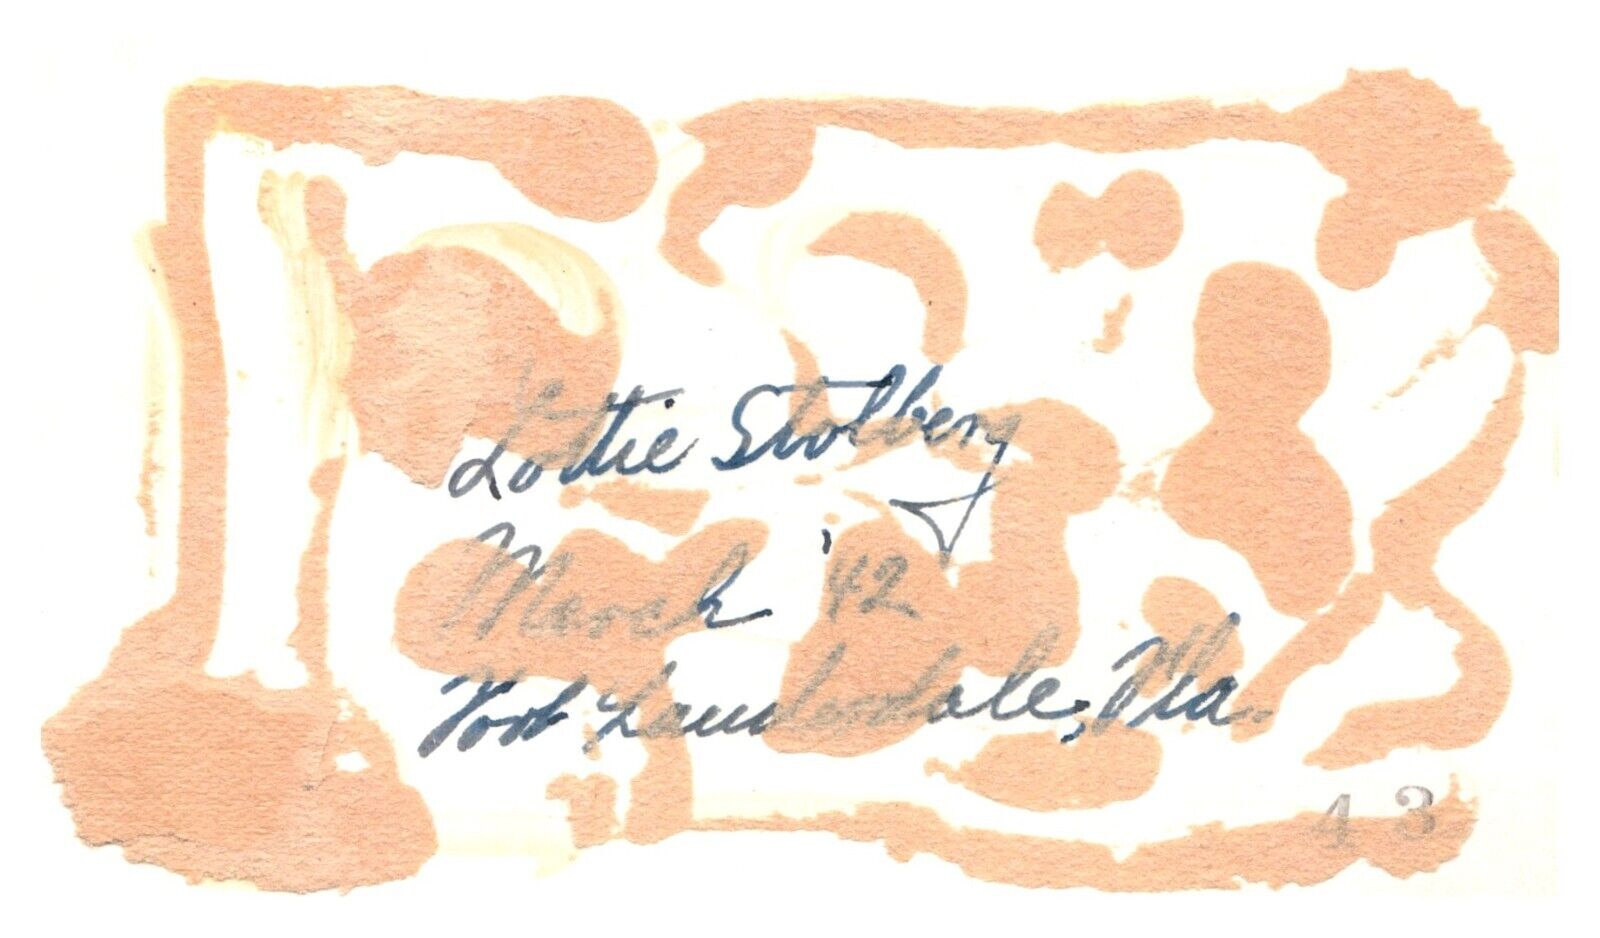 Lottie Stolberg
March '42
Fort Lauderdale, Fla.
43